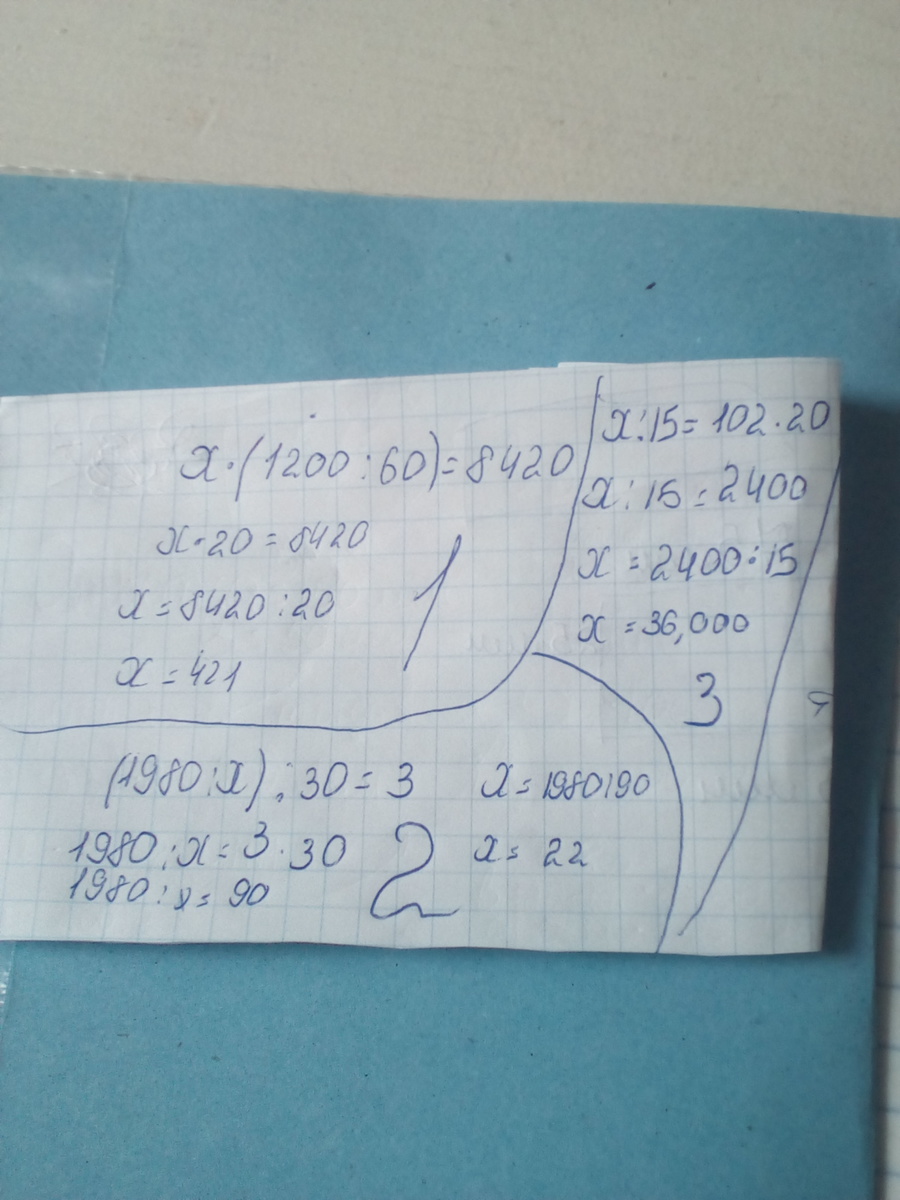 x·(1200:60)=8420
x·20=8420
x=8420:20
x=421
1
x:15=102·20
x:15=2400
x=2400·15
x=36,000
3
(1980:x):30=3
1980:x=3·30
1980:x=90
2
x=1980:90
x=22